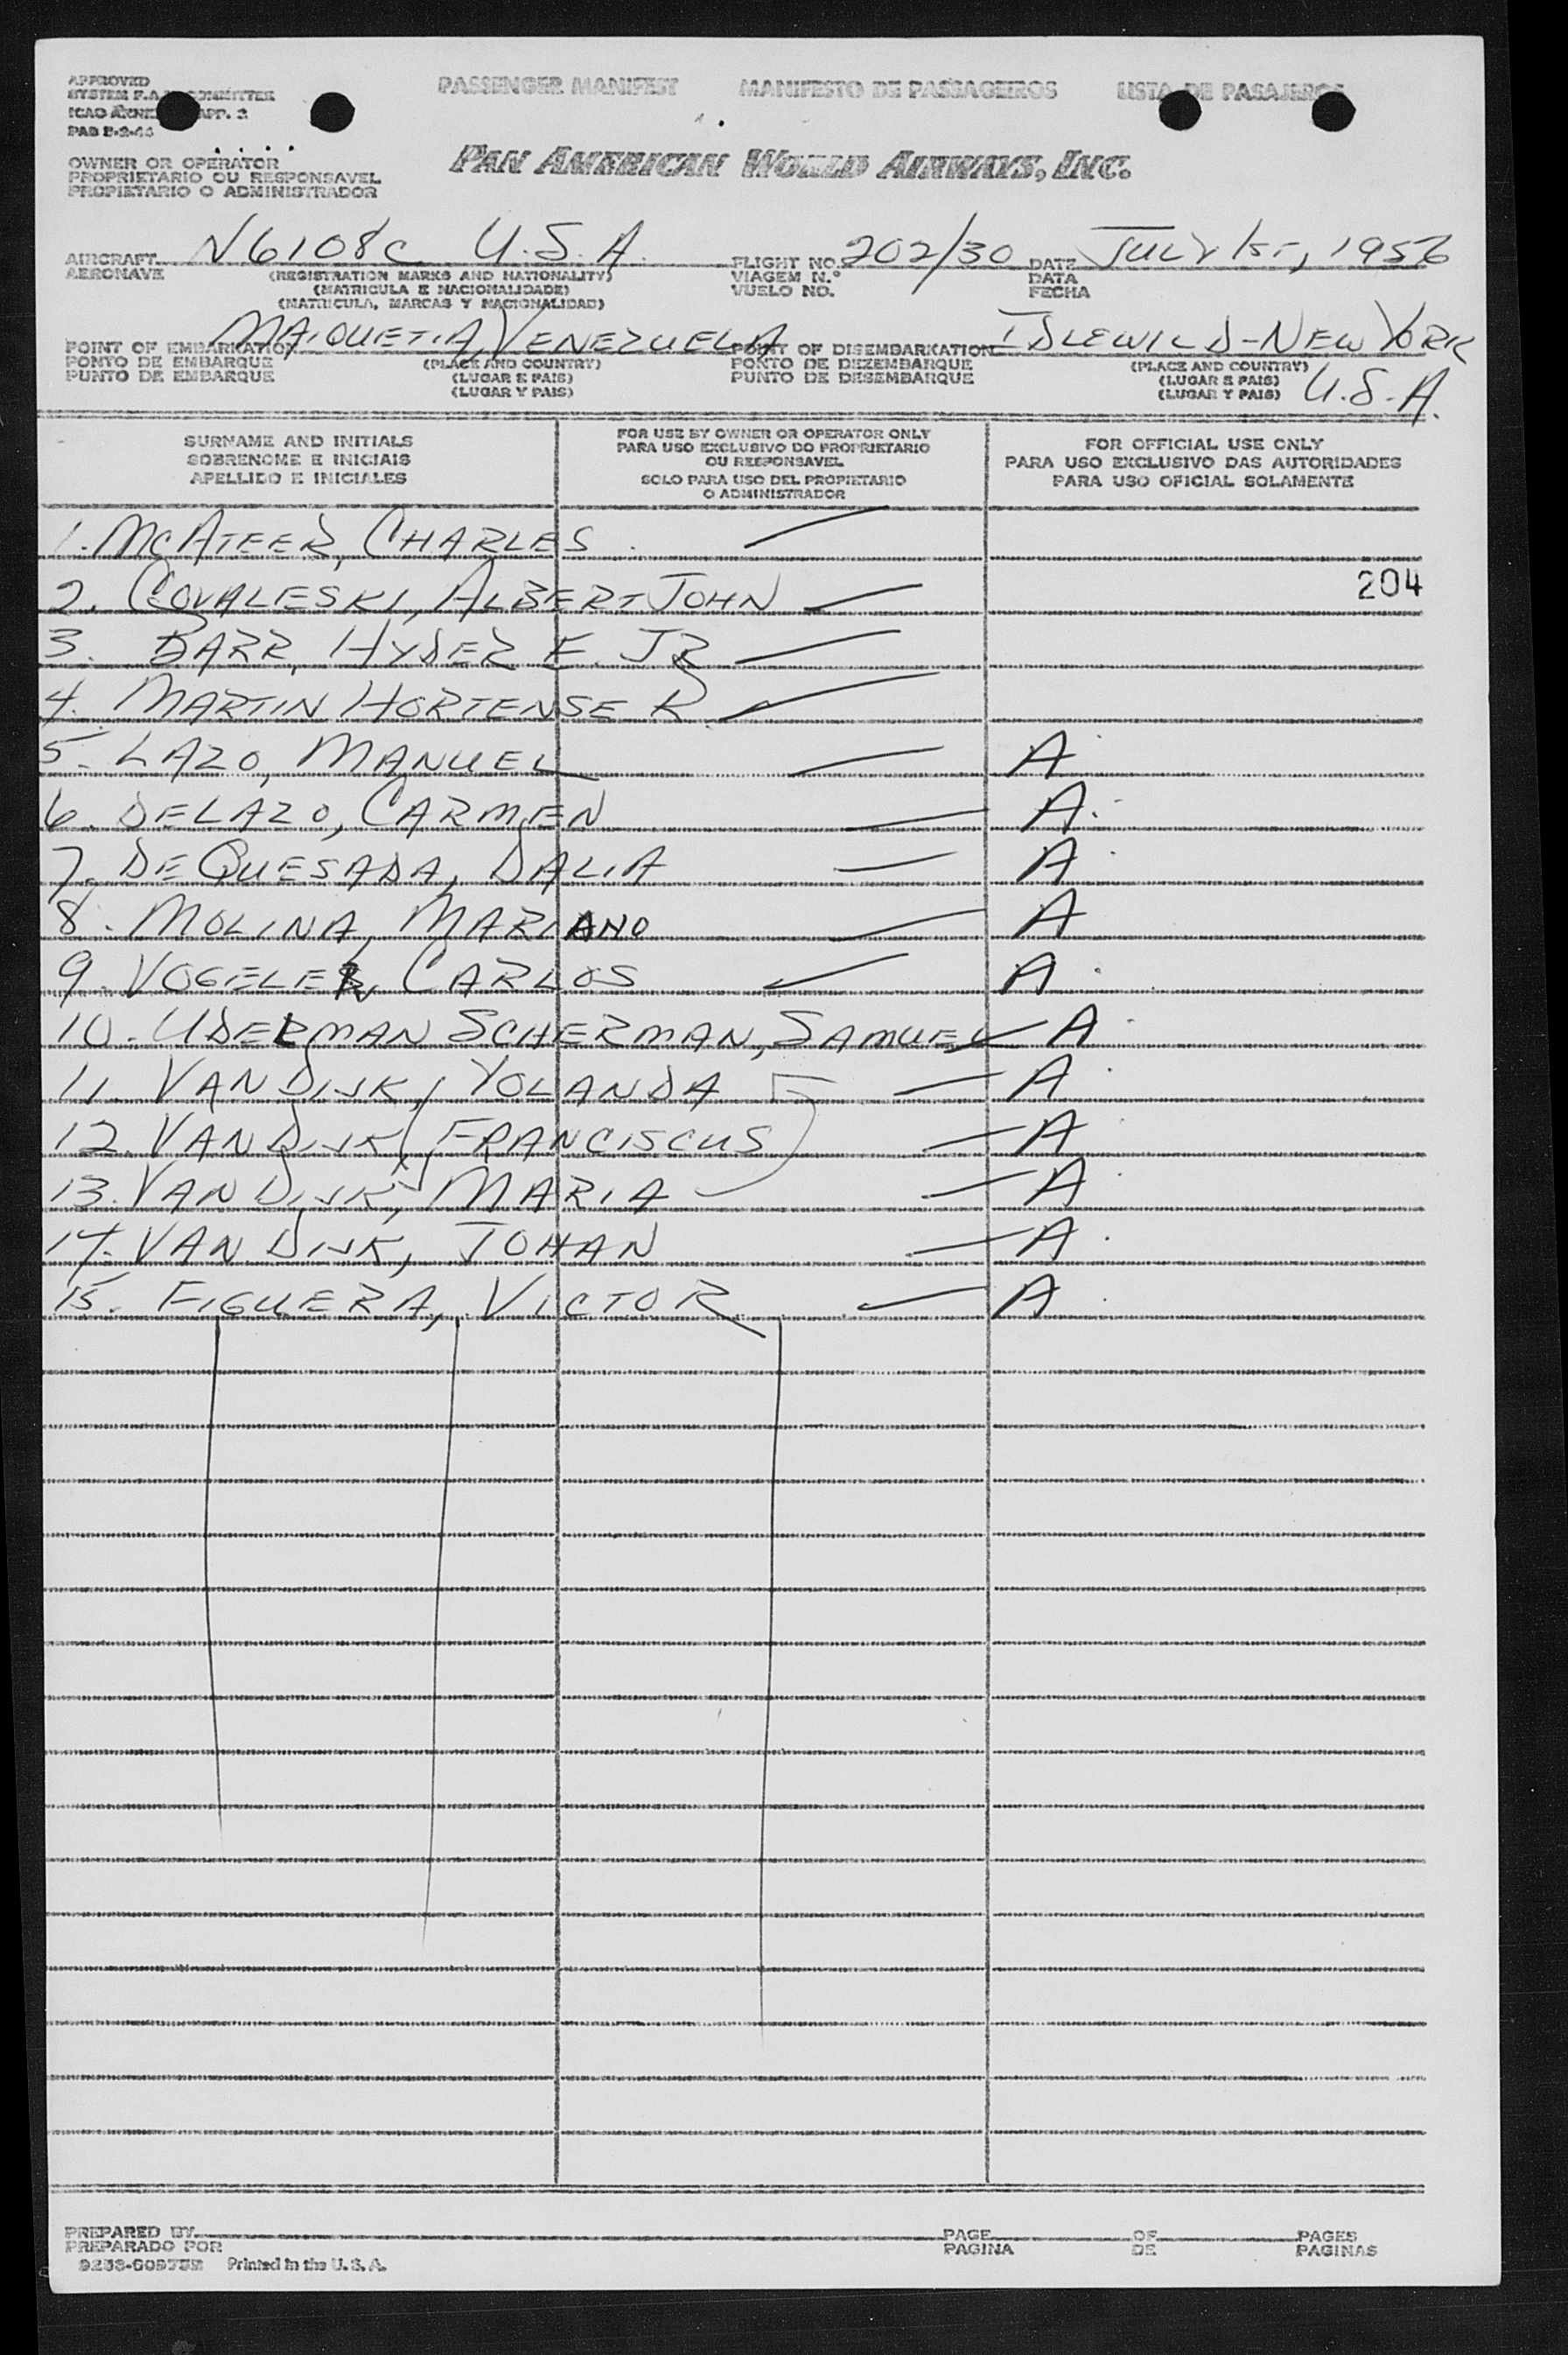 APPROVED PASSENGER MANIFEST MANIFESTO DE PASSAGEIROS LISTA DE PASAJEROS
SYSTEM F.A.
ICAO APP. 2
OWNER OR OPERATOR
PROPRIETARIO OU RESPONSAVEL
PROPIETARIO O ADMINISTRADOR
PAN AMERICAN WORLD AIRWAYS, INC.
AIRCRAFT N6108C U.S.A. FLIGHT NO. 202/30 DATE JULY 1ST, 1956
AERONAVE (REGISTRATION MARKS AND NATIONALITY) VIAGEM N.º DATA
(MATRICULA E NACIONALIDADE) VUELO NO. FECHA
(MATRICULA, MARCAS Y NACIONALIDAD)
POINT OF EMBARKATION MAIQUETIA, VENEZUELA POINT OF DISEMBARKATION IDLEWILD-NEW YORK
PONTO DE EMBARQUE (PLACE AND COUNTRY) PONTO DE DEZEMBARQUE (PLACE AND COUNTRY)
PUNTO DE EMBARQUE (LUGAR E PAIS) PUNTO DE DESEMBARQUE (LUGAR E PAIS) U.S.A.
(LUGAR Y PAIS) (LUGAR Y PAIS)
SURNAME AND INITIALS
SOBRENOME E INICIAIS
APELLIDO E INICIALES
FOR USE BY OWNER OR OPERATOR ONLY
PARA USO EXCLUSIVO DO PROPRIETARIO
OU RESPONSAVEL
SOLO PARA USO DEL PROPIETARIO
O ADMINISTRADOR
FOR OFFICIAL USE ONLY
PARA USO EXCLUSIVO DAS AUTORIDADES
PARA USO OFICIAL SOLAMENTE
1. MCATEER, CHARLES
2. COVALESKI, ALBERT JOHN 204
3. BARR, HYDER E. JR
4. MARTIN HORTENSE R.
5. LAZO, MANUEL A
6. DELAZO, CARMEN A
7. DE QUESADA, DALIA A
8. MOLINA, MARIANO A
9. VOGELER, CARLOS A
10. UDELMAN SCHERMAN, SAMUEL A
11. VAN DIJK, YOLANDA A
12. VAN DIJK, FRANCISCUS A
13. VAN DIJK, MARIA A
14. VAN DIJK, JOHAN A
15. FIGUERA, VICTOR A
PREPARED BY PAGE OF PAGES
PREPARADO POR PAGINA DE PAGINAS
Printed in the U.S.A.